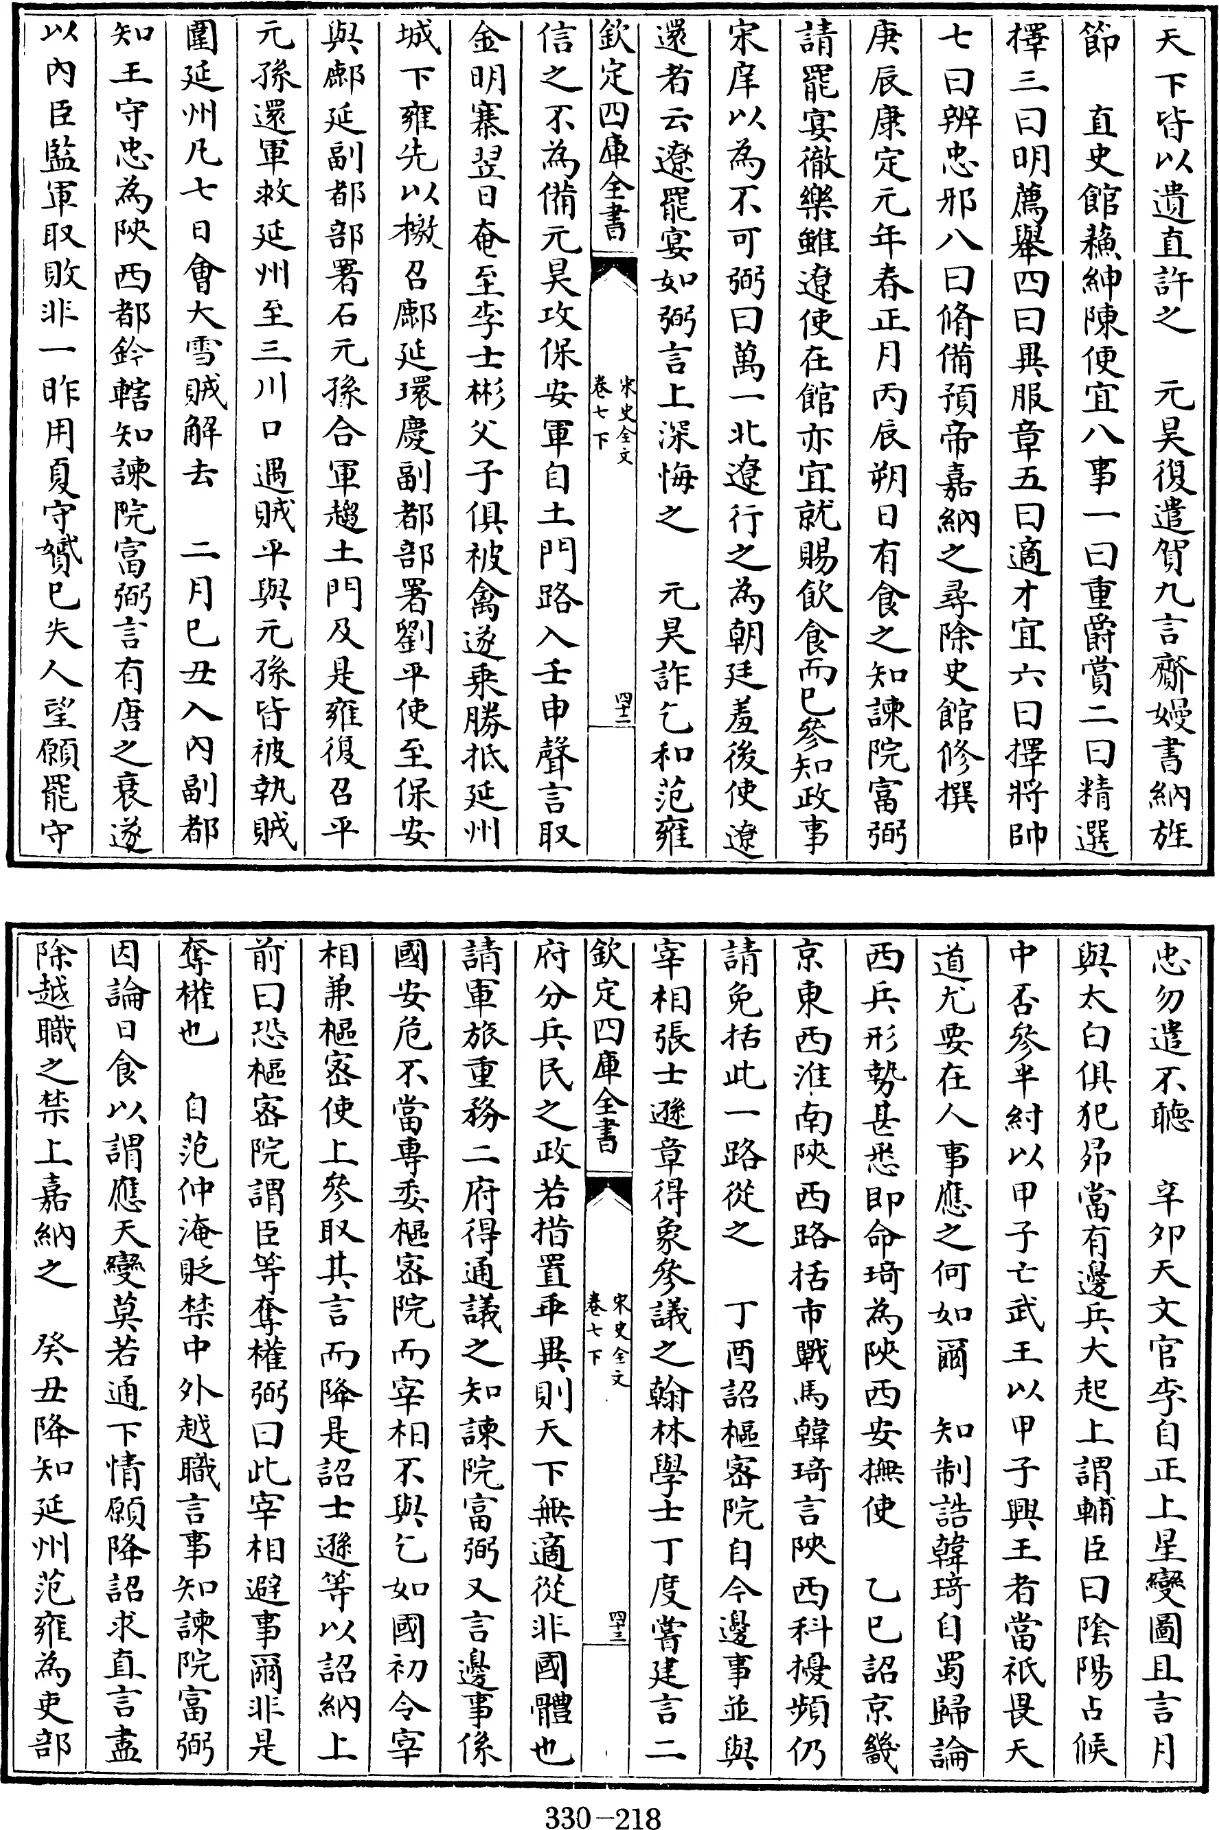 天下皆以遺直許之　元昊復遣賀九言齎嫚書納旌
節　直史館蘇紳陳便宜八事一曰重爵賞二曰精選
擇三曰明薦舉四曰異服章五曰適才宜六曰擇將帥
七曰辨忠邪八曰脩備預帝嘉納之尋除史館修撰
庚辰康定元年春正月丙辰朔日有食之知諫院富弼
請罷宴徹樂雖遼使在館亦宜就賜飲食而已參知政事
宋庠以為不可弼曰萬一北遼行之為朝廷羞後使遼
還者云遼罷宴如弼言上深悔之　元昊詐乞和范雍
欽定四庫全書
宋史全文
卷七下
四十二
信之不為備元昊攻保安軍自土門路入壬申聲言取
金明寨翌日奄至李士彬父子俱被禽遂乗勝抵延州
城下雍先以檄召鄜延環慶副都部署劉平使至保安
與鄜延副都部署石元孫合軍趨土門及是雍復召平
元孫還軍救延州至三川口遇賊平與元孫皆被執賊
圍延州凡七日會大雪賊解去　二月巳丑入內副都
知王守忠為陝西都鈐轄知諫院富弼言有唐之衰遂
以內臣監軍取敗非一昨用夏守贇已失人望願罷守
忠勿遣不聽　辛卯天文官李自正上星變圖且言月
與太白俱犯昴當有邊兵大起上謂輔臣曰陰陽占候
中否參半紂以甲子亡武王以甲子興王者當祇畏天
道尤要在人事應之何如爾　知制誥韓琦自蜀歸論
西兵形勢甚悉即命琦為陝西安撫使　乙巳詔京畿
京東西淮南陝西路括市戰馬韓琦言陝西科擾頻仍
請免括此一路從之　丁酉詔樞密院自今邊事並與
宰相張士遜章得象參議之翰林學士丁度嘗建言二
欽定四庫全書
宋史全文
卷七下
四十三
府分兵民之政若措置乖異則天下無適從非國體也
請軍旅重務二府得通議之知諫院富弼又言邊事係
國安危不當專委樞密院而宰相不與乞如國初令宰
相兼樞密使上參取其言而降是詔士遜等以詔納上
前曰恐樞密院謂臣等奪權弼曰此宰相避事爾非是
奪權也　自范仲淹貶禁中外越職言事知諫院富弼
因論日食以謂應天變莫若通下情願降詔求直言盡
除越職之禁上嘉納之　癸丑降知延州范雍為吏部
330-218